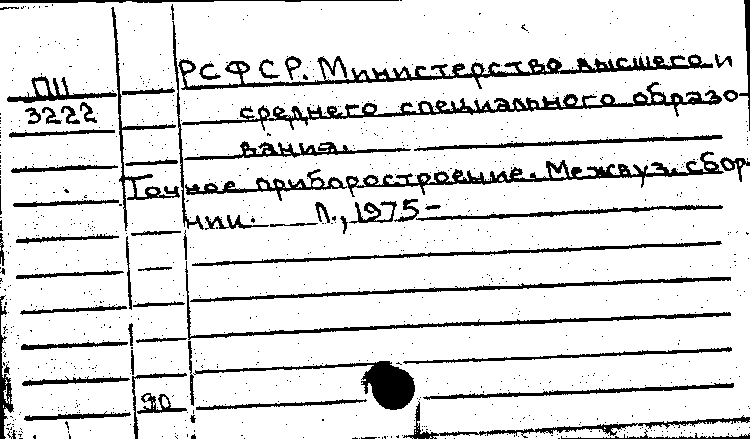 П11
3222
РСФСР. Министерство высшего и
среднего специального образо-
вания.
Точное приборостроение. Межвуз. сбор-
ник. Л., 1975-
90